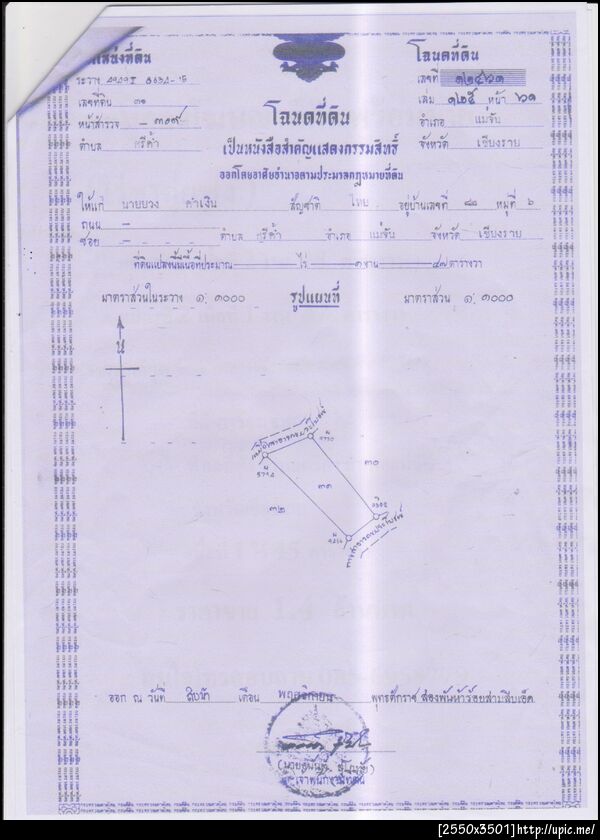 ตำแหน่งที่ดิน
ระวาง
เลขที่ดิน ๓๑
หน้าสำรวจ ๓๐๙
ตำบล ศรีค้ำ
โฉนดที่ดิน
เลขที่
เล่ม ๑๒๕ หน้า ๖๑
อำเภอ แม่จัน
จังหวัด เชียงราย
โฉนดที่ดิน
เป็นหนังสือสำคัญแสดงกรรมสิทธิ์
ออกโดยอาศัยอำนาจตามประมวลกฎหมายที่ดิน
ให้แก่ นายบวง คำเงิน สัญชาติ ไทย อยู่บ้านเลขที่ ๘๘ หมู่ที่ ๖
ถนน –
ซอย – ตำบล ศรีค้ำ อำเภอ แม่จัน จังหวัด เชียงราย
ที่ดินแปลงนี้มีเนื้อที่ประมาณ — ไร่ ๑ งาน ๔๗ ตารางวา
มาตราส่วนในระวาง ๑: ๑๐๐๐ รูปแผนที่ มาตราส่วน ๑: ๑๐๐๐
น
๓๐
๓๑
๓๒
ทางสาธารณประโยชน์
ออก ณ วันที่ สิบห้า เดือน พฤศจิกายน พุทธศักราช สองพันห้าร้อยสามสิบเอ็ด
เจ้าพนักงานที่ดิน
[2550x3501]http://upic.me/